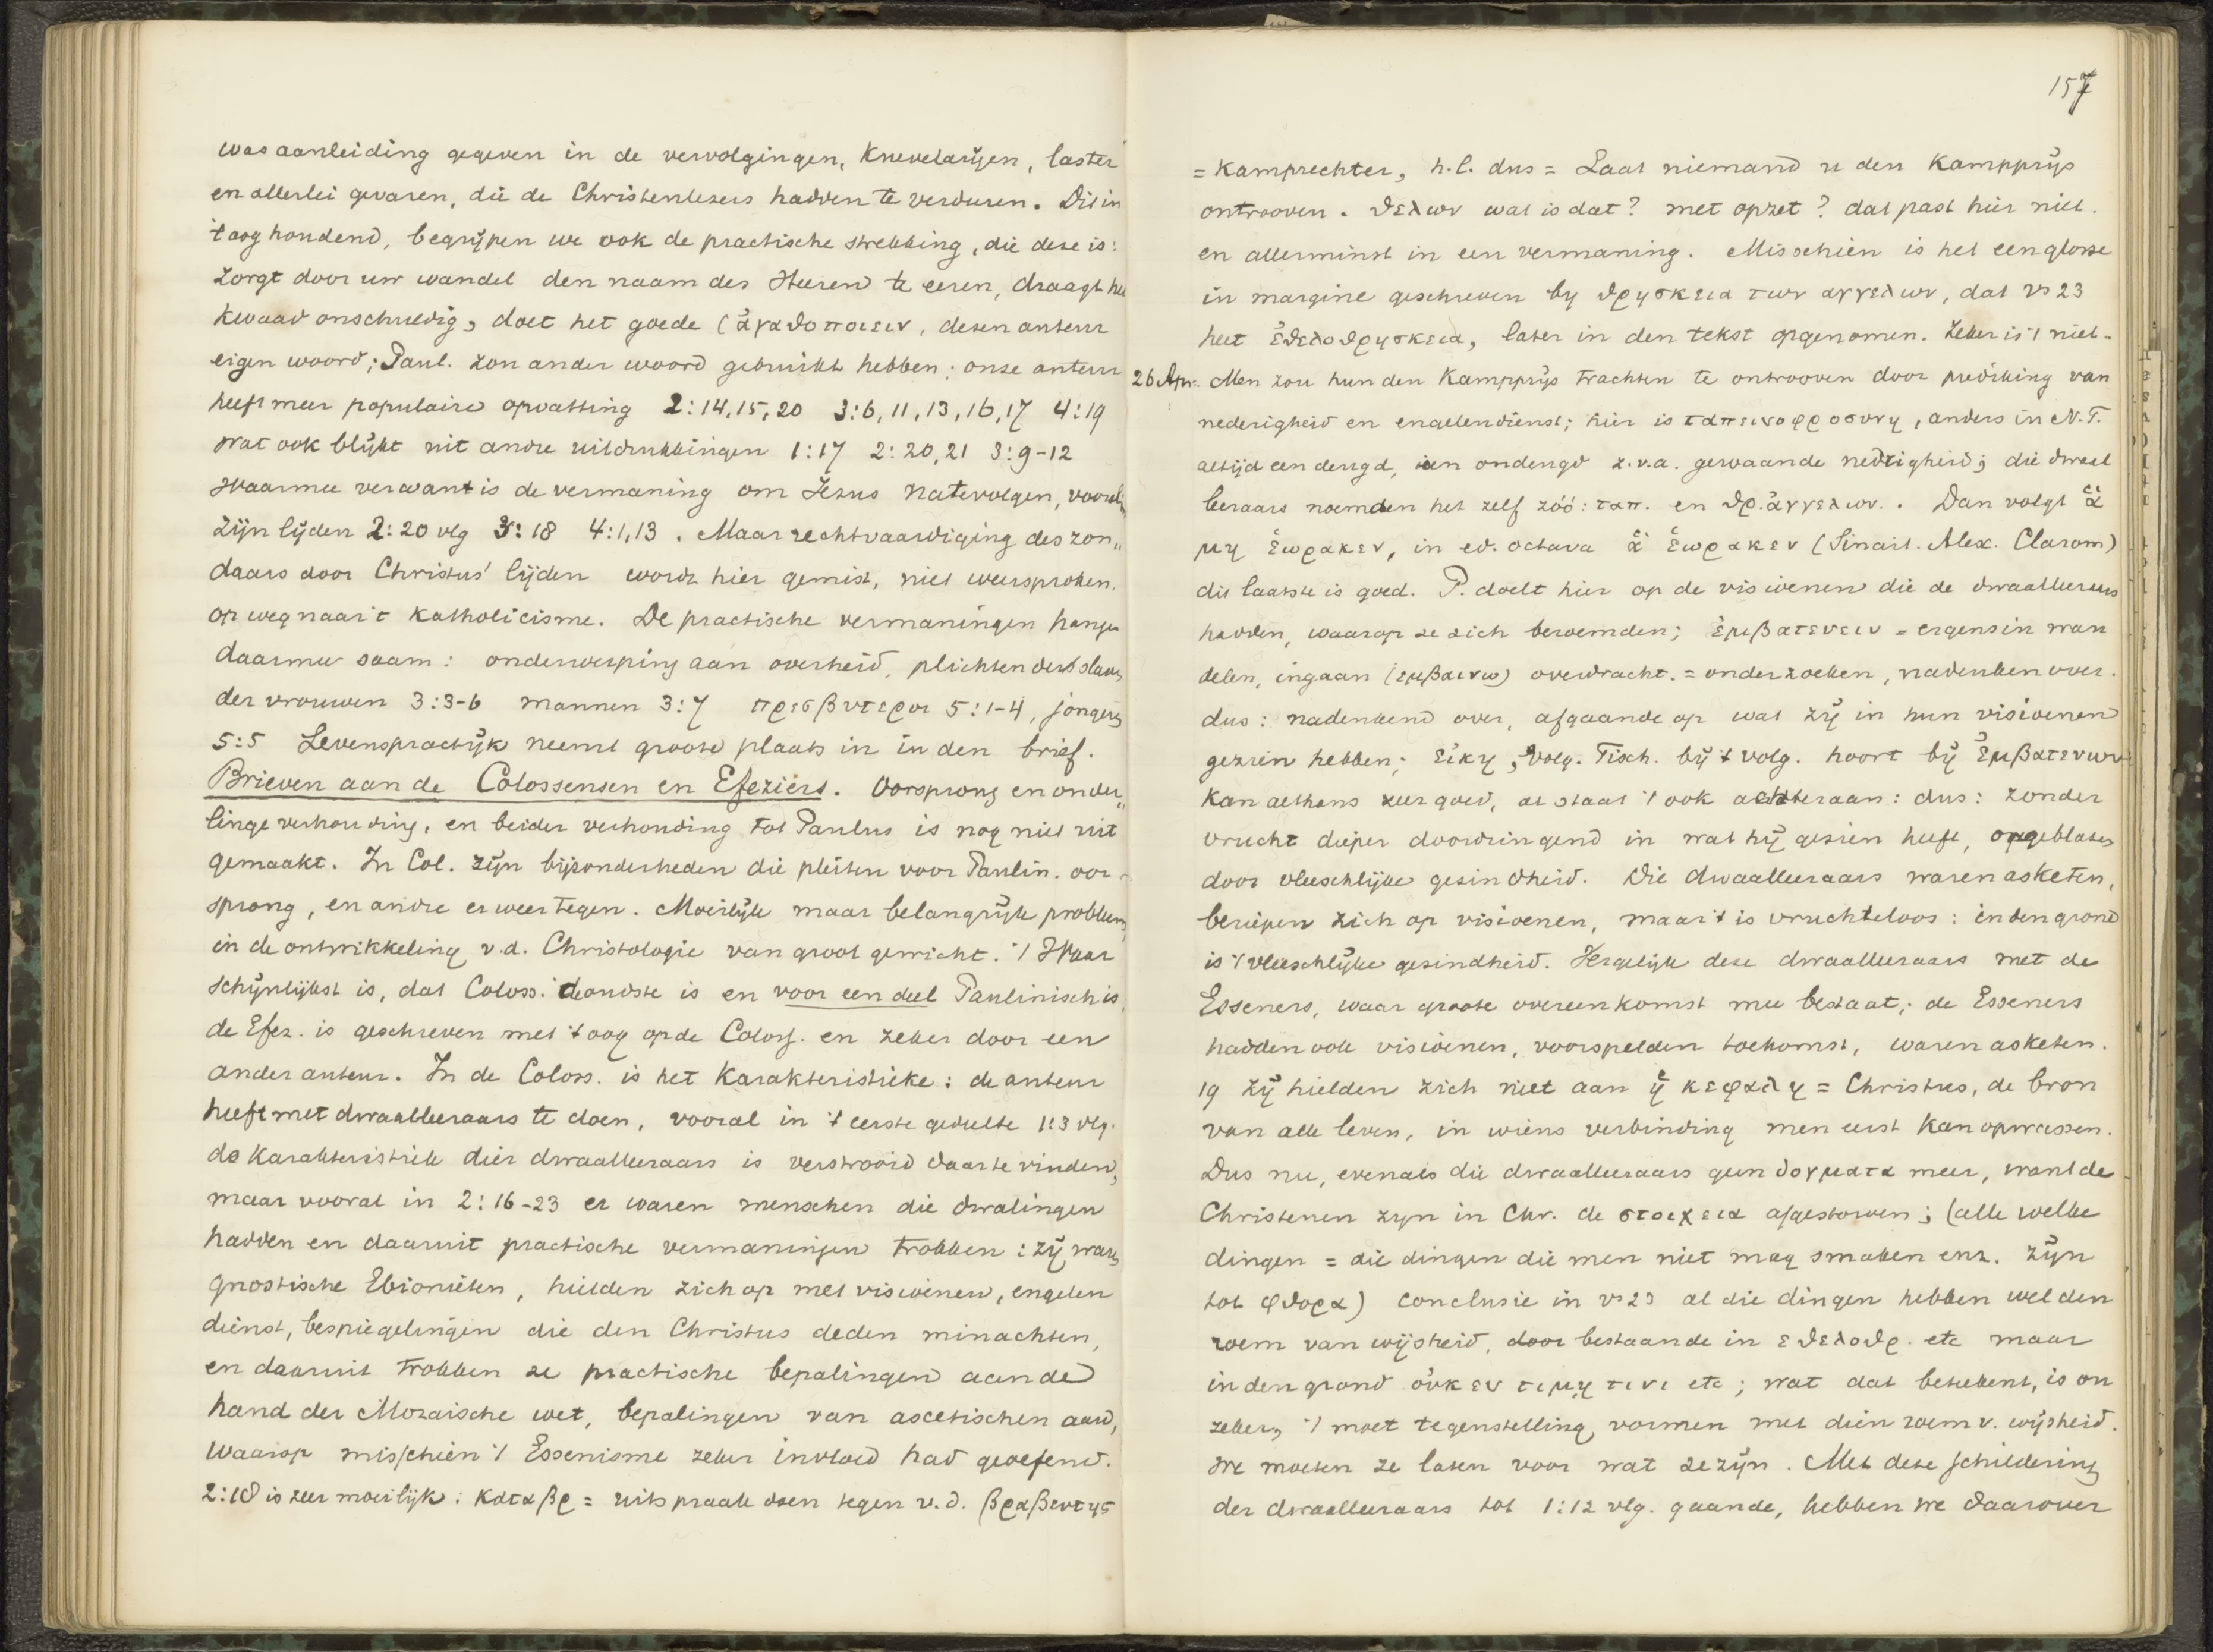 was aanleiding gegeven in de vervolgingen, Knevelarijen, laster
en allerlei gevaren, die de Christenlezers hadden te verduren. Dit in
't oog houdend, begrijpen we ook de practische strekking, die deze is:
Zorgt door uw wandel den naam des Heeren te eeren, draagt het
Kwaad onschuldig, doet het goede (ἀγαθοποιειν, dezen auteur
eigen woord; Paul. zou ander woord gebruikt hebben; onze auteur
heeft meer populaire opvatting 2:14,15,20 3:6,11,13,16,17 4:19
wat ook blijkt uit andre uitdrukkingen 1:17 2:20,21 3:9-12
Waarmee verwant is de vermaning om Jezus na te volgen, vooral in
Zijn lijden 2:20 vlg 3:18 4:1,13. Maar rechtvaardiging des zon„
daars door Christus' lijden wordt hier gemist, niet weersproken.
op weg naar 't Katholicisme. De practische vermaningen hangen
daarmee saam: onderwerping aan overheid, plichten der slaven,
der vrouwen 3:3-6 mannen 3:7 πρεσβυτεροι 5:1-4, jongeren
5:5 Levenspractijk neemt groote plaats in in den brief.
Brieven aan de Colossensen en Efeziërs. Oorsprong en onder„
linge verhouding, en beider verhouding tot Paulus is nog niet uit
gemaakt. In Col. zijn bijzonderheden die pleiten voor Paulin. oor-
sprong, en andre er weer tegen. Moeilijk maar belangrijk probleem,
in de ontwikkeling v.d. Christologie van groot gewicht. 't Waar
schijnlijkst is, dat Coloss. de oudste is en voor een deel Paulinisch is,
de Efez. is geschreven met 't oog op de Coloss. en zeker door een
ander auteur. In de Coloss. is het Karakteristieke: de auteur
heeft met dwaalleeraars te doen, vooral in 't eerste gedeelte 1:3 vlg.
de Karakteristiek dier dwaalleeraars is verstrooid daar te vinden,
maar vooral in 2:16-23 er waren menschen die dwalingen
hadden en daaruit practische vermaningen trokken: zij waren
gnostische Ebionieten, hielden zich op met visioenen, engelen
dienst, bespiegelingen die den Christus deden minachten,
en daaruit trokken ze practische bepalingen aan de
hand der Mozaische wet, bepalingen van ascetischen aard,
Waarop misschien 't Essenisme zeker invloed had geoefend.
2:18 is zeer moeilijk: καταβρ = uitspraak doen tegen v.d. βραβευτης
157
= Kamprechter, h.l. dus = Laat niemand u den Kampprijs
ontrooven. θελων wat is dat? met opzet? dat past hier niet.
en allerminst in een vermaning. Misschien is het een glosse
in margine geschreven by θρησκεια των αγγελων, dat vs 23
heet ἐθελοθρησκεια, later in den tekst opgenomen. Zeker is 't niet.
26 Apr. Men zou hun den Kampprijs trachten te ontrooven door prediking van
nederigheid en engelendienst; hier is ταπεινοφροσυνη, anders in N.T.
altijd een deugd, een ondeugd z.v.a. gewaande nedrigheid; die dwaal
leraars noemden het zelf zóó: ταπ. en θρ. ἀγγελων. Dan volgt ἃ
μη ἑωρακεν, in ed. octava ἃ ἑωρακεν (Sinait. Alex. Clarom)
dit laatste is goed. P. doelt hier op de visioenen die de dwaalleeraars
hadden, waarop ze zich beroemden; ἐμβατευειν = ergens in wan
delen, ingaan (εμβαινω) overdracht. = onderzoeken, nadenken over.
dus: nadenkend over, afgaande op wat zij in hun visioenen
gezien hebben; εἰκη, volg. Tisch. bij 't volg. hoort bij ἐμβατευων
Kan althans zeer goed, al staat 't ook achteraan: dus: zonder
vrucht dieper doordringend in wat hij gezien heeft, opgeblazen
door vleeschlijke gezindheid. Die dwaalleeraars waren asketen,
beriepen zich op visioenen, maar 't is vruchteloos: in den grond
is 't vleeschlijke gezindheid. Vergelijk deze dwaalleeraars met de
Esseners, waar groote overeenkomst mee bestaat; de Esseners
hadden ook visioenen, voorspelden toekomst, waren asketen.
19 Zij hielden zich niet aan ἡ κεφαλη = Christus, de bron
van alle leven, in wiens verbinding men eerst Kan opwassen.
Dus nu, evenals die dwaalleeraars geen δογματα meer, want de
Christenen zyn in Chr. de στοιχεια afgestorven; (alle welke
dingen = die dingen die men niet mag smaken enz. zijn
tot φθορα) conclusie in vs 23 al die dingen hebben wel den
roem van wijsheid, door bestaande in εθελοθρ. etc maar
in den grond οὐκ εν τιμῃ τινι etc; wat dat beteekent, is on
zeker, 't moet tegenstelling vormen met dien roem v. wijsheid.
We moeten ze laten voor wat ze zijn. Met deze schildering
der dwaalleeraars tot 1:12 vlg. gaande, hebben we daarover